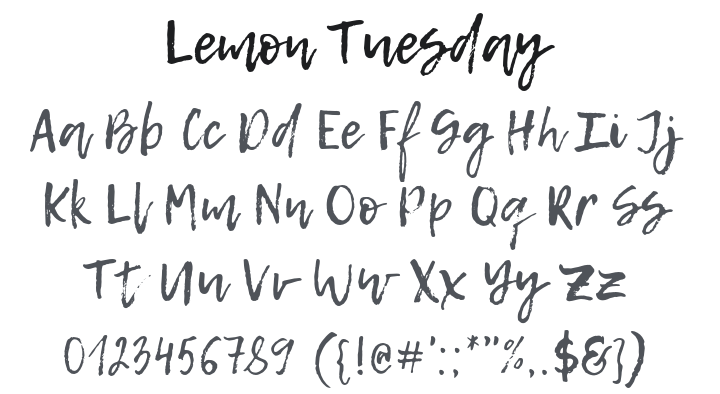 Lemon Tuesday
Aa Bb Cc Dd Ee Ff Gg Hh Ii Jj
Kk Ll Mm Nn Oo Pp Qq Rr Ss
Tt Uu Vv Ww Xx Yy Zz
0123456789 ({!@#':;*"%,.$&})